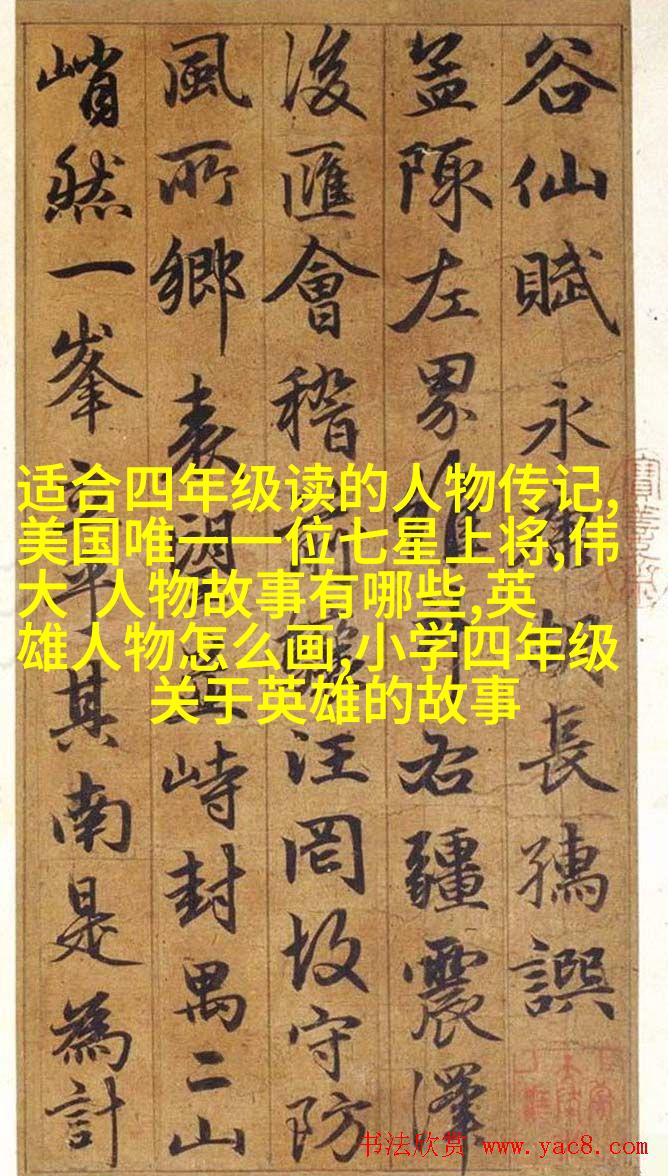 谷仙賦 永長孺譔
左界右疆震澤
後匯會稽汪罔故守防
風所鄉表峙封禺二山
峭然一峯其南是為計
适合四年级读的人物传记,
美国唯一一位七星上将,伟
大 人物故事有哪些,英
雄人物怎么画,小学四年级
关于英雄的故事
书法欣赏 www.yac8.com